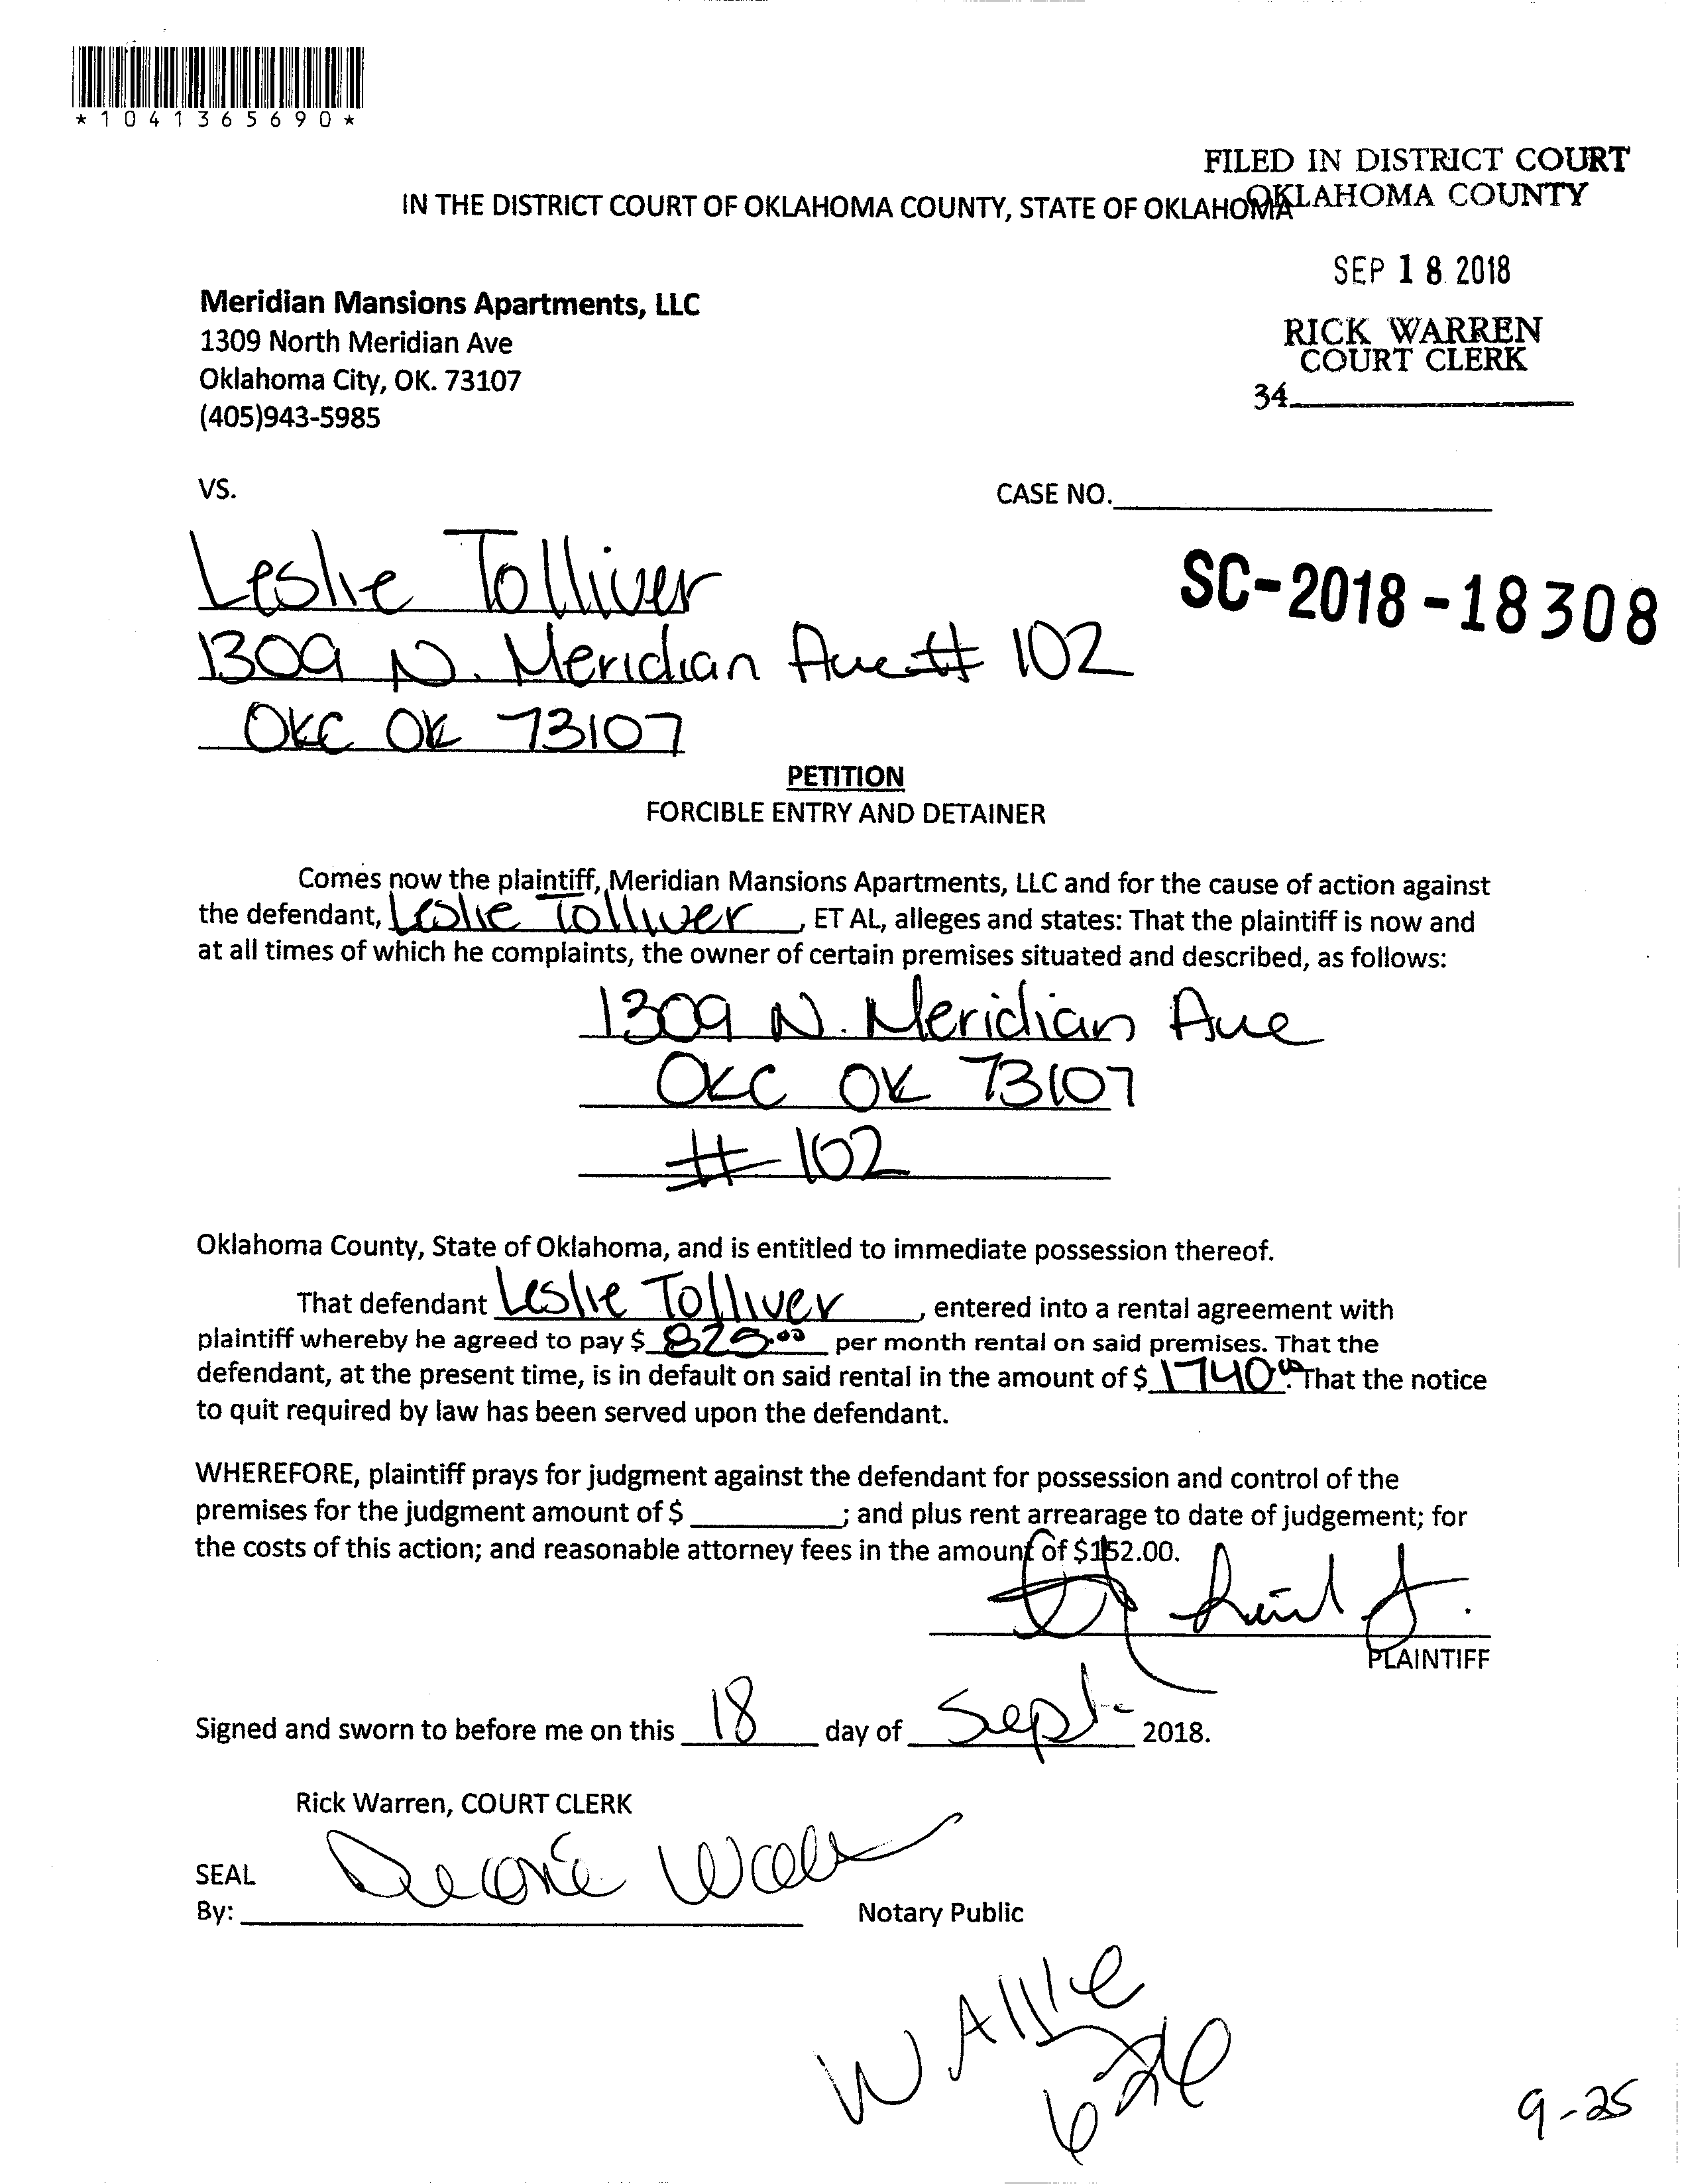 *1041365690*
FILED IN DISTRICT COURT
OKLAHOMA COUNTY
IN THE DISTRICT COURT OF OKLAHOMA COUNTY, STATE OF OKLAHOMA
SEP 18 2018
RICK WARREN
COURT CLERK
34
Meridian Mansions Apartments, LLC
1309 North Meridian Ave
Oklahoma City, OK. 73107
(405)943-5985
VS.
CASE NO.
SC-2018-18308
Leslie Tolliver
1309 N. Meridian Ave # 102
OKC OK 73107
PETITION
FORCIBLE ENTRY AND DETAINER
Comes now the plaintiff, Meridian Mansions Apartments, LLC and for the cause of action against
the defendant, Leslie Tolliver, ET AL, alleges and states: That the plaintiff is now and
at all times of which he complaints, the owner of certain premises situated and described, as follows:
1309 N. Meridian Ave
OKC OK 73107
# 102
Oklahoma County, State of Oklahoma, and is entitled to immediate possession thereof.
That defendant Leslie Tolliver, entered into a rental agreement with
plaintiff whereby he agreed to pay $ 825.00 per month rental on said premises. That the
defendant, at the present time, is in default on said rental in the amount of $ 1740.00. That the notice
to quit required by law has been served upon the defendant.
WHEREFORE, plaintiff prays for judgment against the defendant for possession and control of the
premises for the judgment amount of $ ; and plus rent arrearage to date of judgement; for
the costs of this action; and reasonable attorney fees in the amount of $152.00.
PLAINTIFF
Signed and sworn to before me on this 18 day of Sept 2018.
Rick Warren, COURT CLERK
SEAL
By: Notary Public
WAllie
9-25